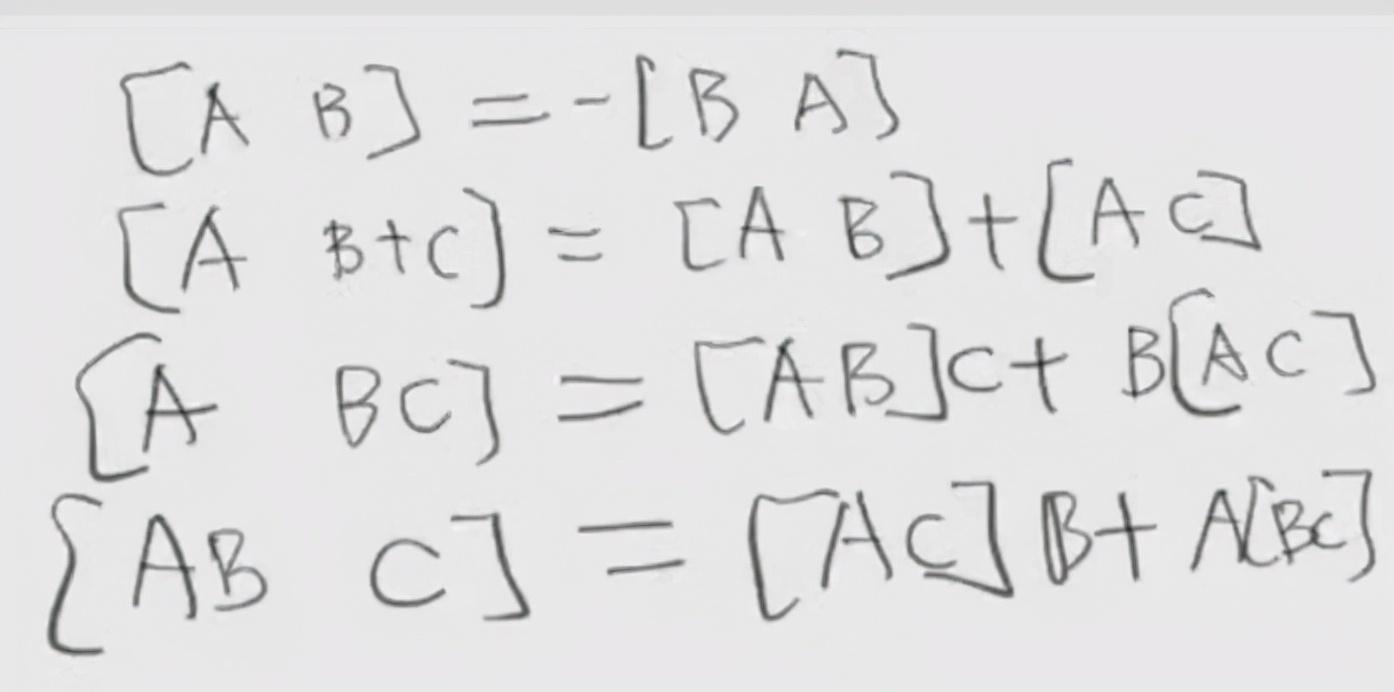 [A B] = -[B A]
[A B+C] = [A B]+[A C]
[A BC] = [AB]C+ B[AC]
[AB C] = [AC]B+ A[BC]